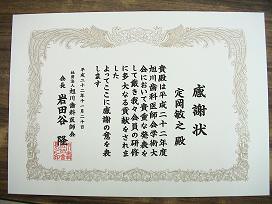 感謝状
定岡敏之 殿
貴殿は平成二十二年度
旭川歯科医師会学術大
会において貴重な発表を
して戴き我々会員の研修
に多大なる貢献をされま
した
よってここに感謝の意を表
します
平成二十二年十一月二十日
社団法人 旭川歯科医師会
会長 岩田谷 隆